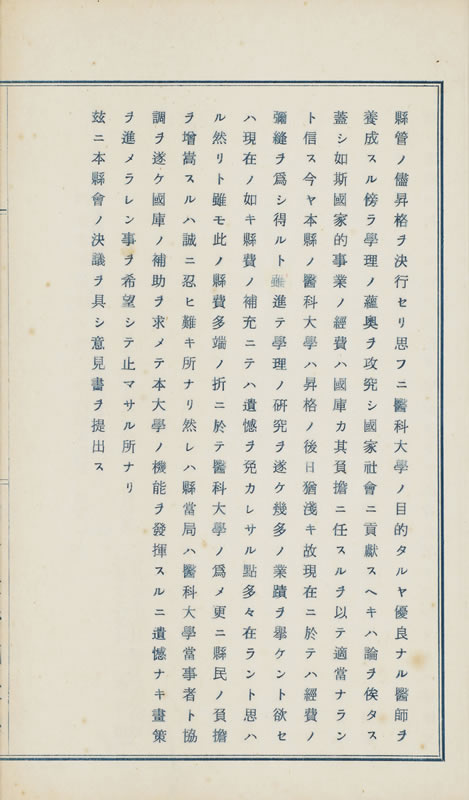 縣管ノ儘昇格ヲ決行セリ思フニ醫科大學ノ目的タルヤ優良ナル醫師ヲ
養成スル傍ラ學理ノ蘊奧ヲ攻究シ國家社會ニ貢獻スヘキハ論ヲ俟タス
蓋シ如斯國家的事業ノ經費ハ國庫カ其負擔ニ任スルヲ以テ適當ナラン
ト信ス今ヤ本縣ノ醫科大學ハ昇格ノ後日猶淺キ故現在ニ於テハ經費ノ
彌縫ヲ爲シ得ルト雖進テ學理ノ硏究ヲ遂ケ幾多ノ業蹟ヲ擧ケント欲セ
ハ現在ノ如キ縣費ノ補充ニテハ遺憾ヲ免カレサル點多々在ラント思ハ
ル然リト雖モ此ノ縣費多端ノ折ニ於テ醫科大學ノ爲メ更ニ縣民ノ負擔
ヲ增嵩スルハ誠ニ忍ヒ難キ所ナリ然レハ縣當局ハ醫科大學當事者ト協
調ヲ遂ケ國庫ノ補助ヲ求メテ本大學ノ機能ヲ發揮スルニ遺憾ナキ畫策
ヲ進メラレン事ヲ希望シテ止マサル所ナリ
玆ニ本縣會ノ決議ヲ具シ意見書ヲ提出ス